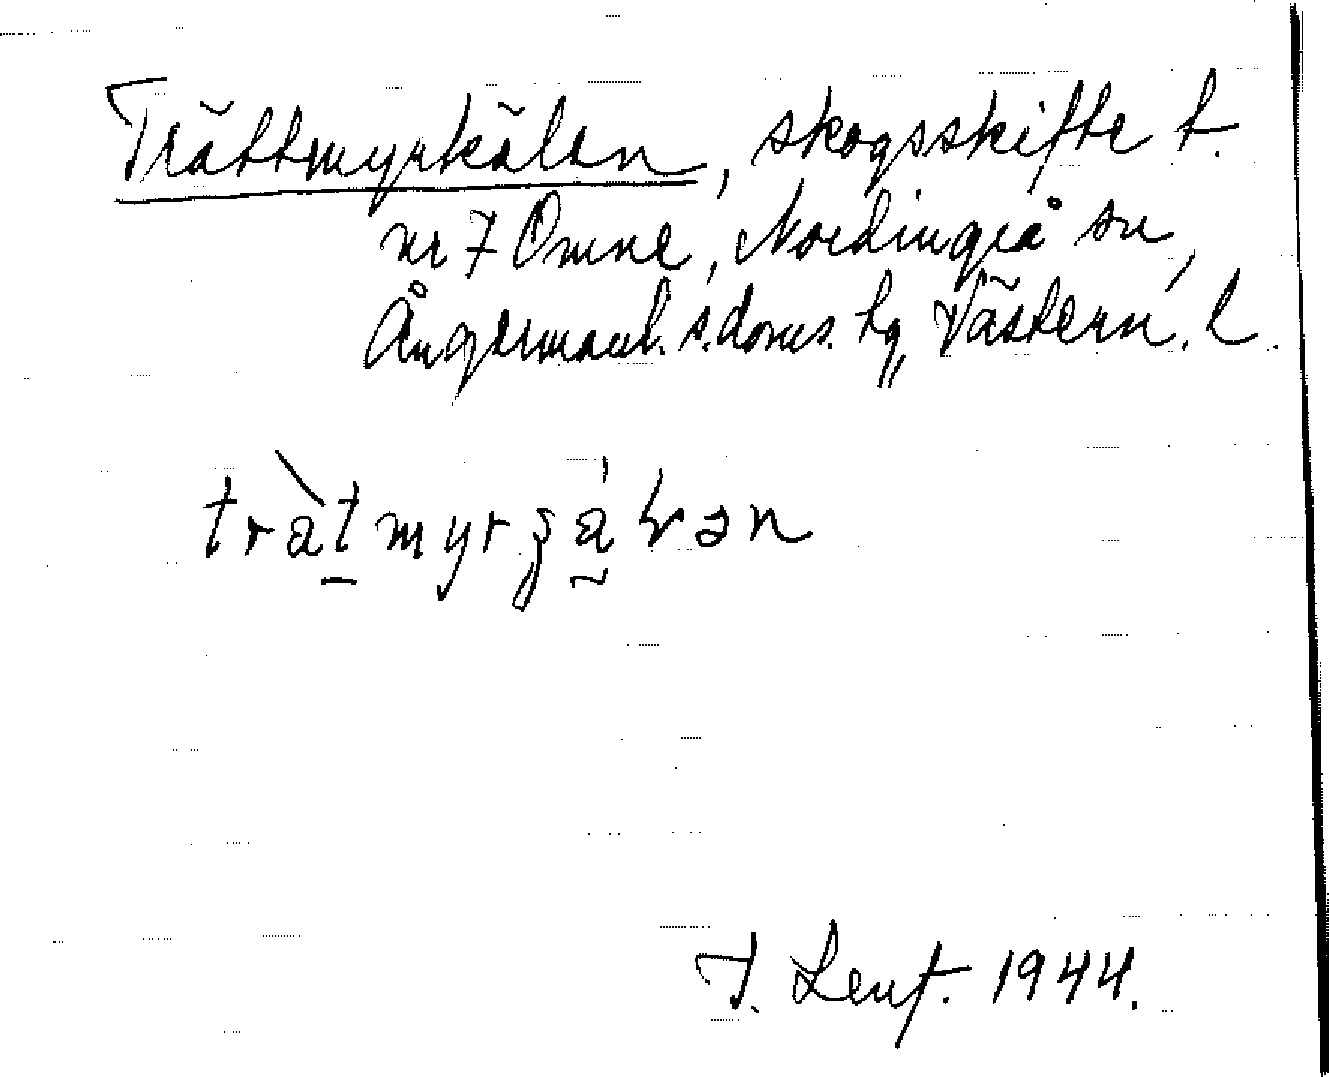 Trättmyrkälen, skogsskifte t.
nr 7 Omne, Nordingrå sn,
Ångermanl. s. doms. tg, Västern. l.
tràtmyrʒa̰ɽən
J. Lenf. 1944.